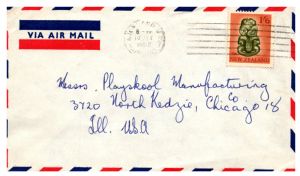 VIA AIR MAIL
1'6
NEW ZEALAND
Messrs. Playskool Manufacturing Co
3720 North Kedzie, Chicago 18
Ill. USA